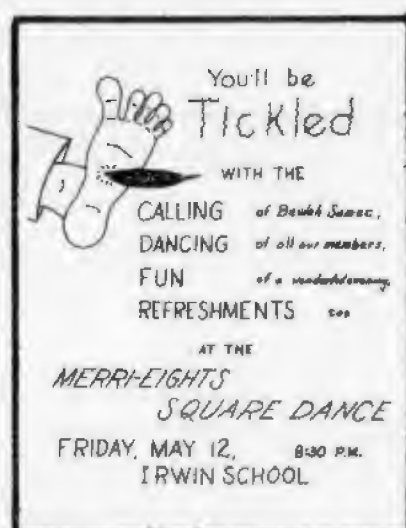 You'll be
Tickled
WITH THE
CALLING of Beulah Samec,
DANCING of all our members,
FUN of a wonderful evening,
REFRESHMENTS too
AT THE
MERRI-EIGHTS
SQUARE DANCE
FRIDAY, MAY 12, 8:30 P.M.
IRWIN SCHOOL